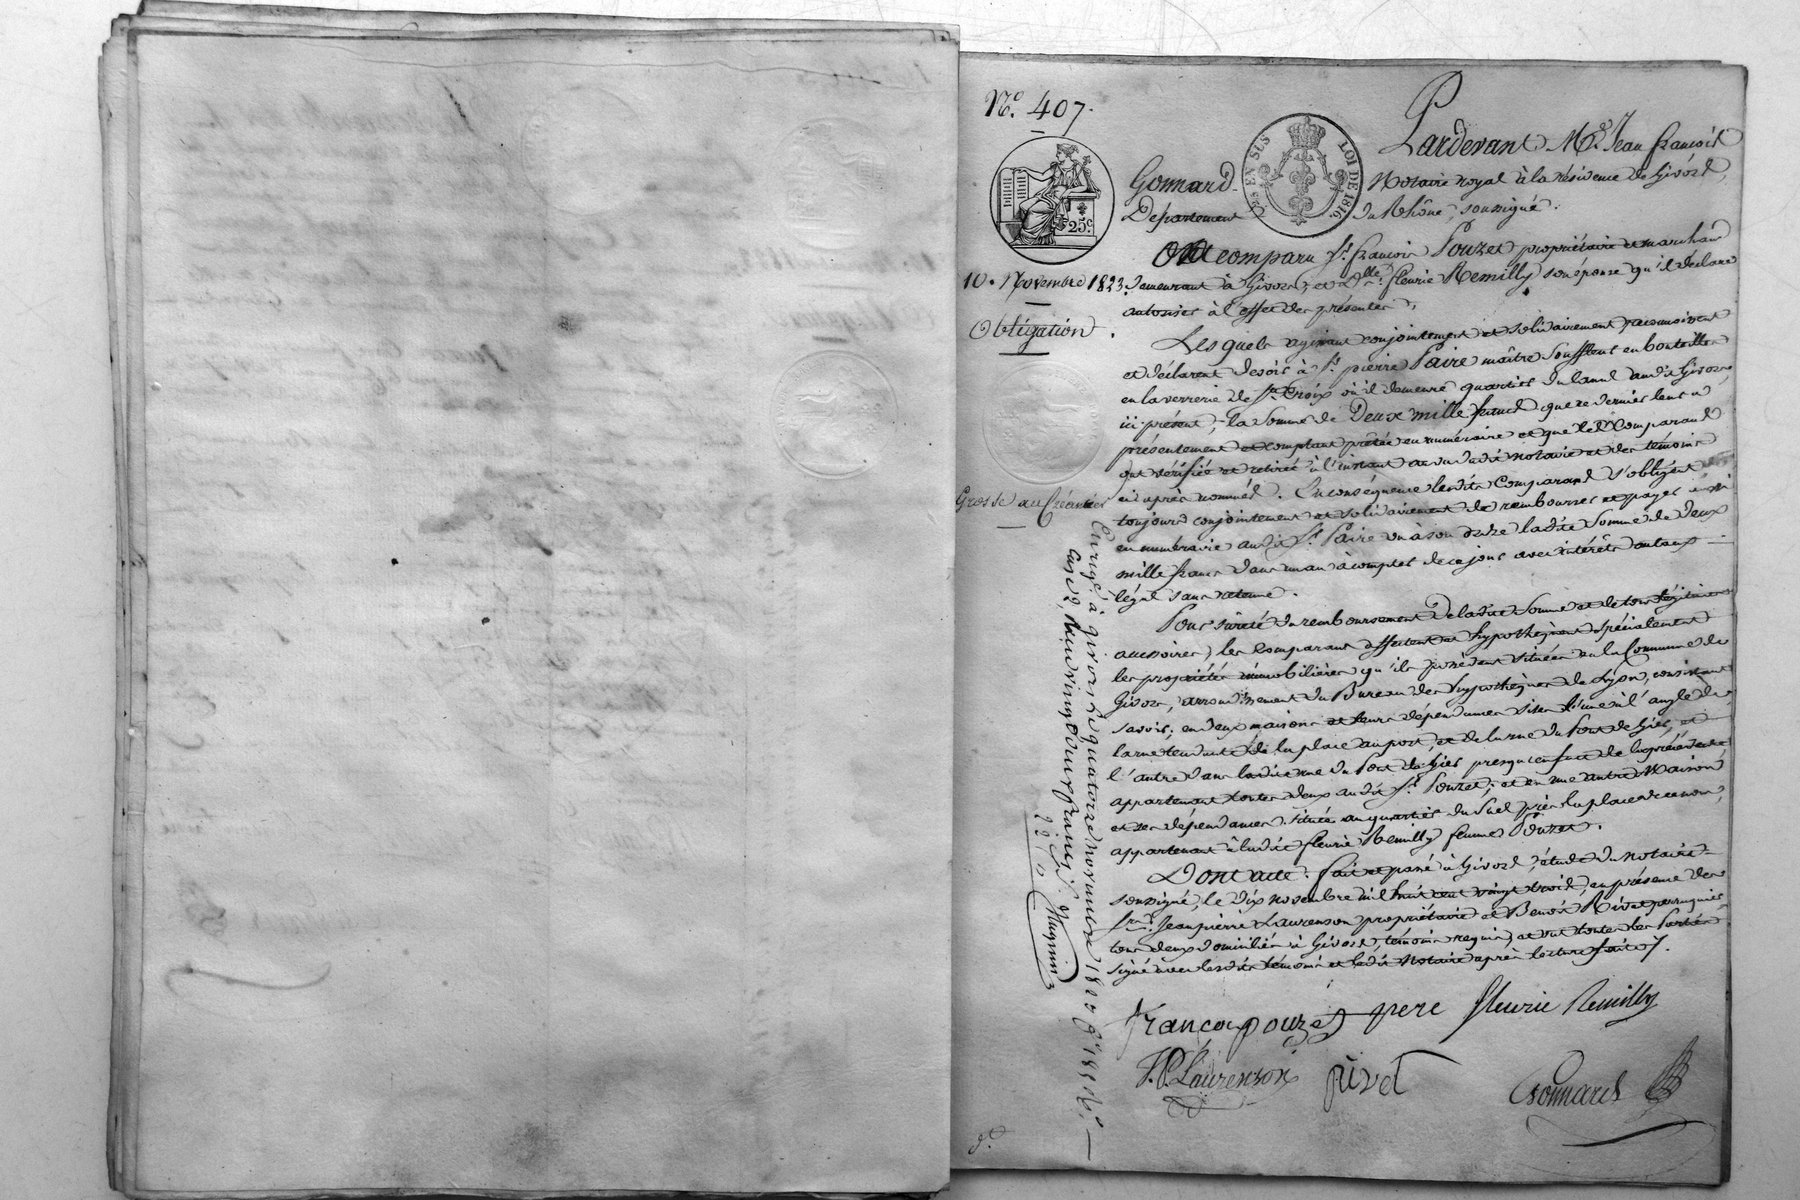 N.º 407.
25c.
LOI DE 1816.
EN SUS
Pardevant Mᵉ. Jean françois
Gonnard Notaire royal à la résidence de Givors,
Département du Rhône, soussigné.
10. Novembre 1823.
Obligation
Grosse au Créancier
Ont comparu Sʳ. françois Pouzet propriétaire et marchand
demeurant à Givors, et dˡˡᵉ. fleurie Remilly son épouse qu'il déclare
autoriser à l'effet des présentes,
Lesquels agissant conjointement et solidairement reconnoissent
et déclarent devoir à Sʳ. pierre Paire maître Souffleur en bouteilles
en la verrerie de Sᵗᵉ. Croix où il demeure quartier du canal audit Givors,
ici présent, la Somme de Deux mille francs que ce dernier leur a
présentement et comptant prêtée en numéraire et que les Comparans
ont vérifiée et retirée à l'instant au vu dudit notaire et des témoins
ci après nommés. En conséquence lesdits Comparans s'obligent
toujours conjointement et solidairement de rembourser et payer aussi
en numéraire audit Sʳ. Paire ou à son ordre ladite Somme de deux
mille francs dans un an à compter de ce jour avec intérêts au taux
légal sans retenue.
Pour sureté du remboursement de ladite Somme et de tous légitimes
accessoires, les Comparans affectent et hypothèquent spécialement
les propriétés immobilières qu'ils possèdent situées en la Commune de
Givors, arrondissement du Bureau des hypothèques de Lyon, consistant
savoir; en deux maisons et leurs dépendances sises l'une à l'angle de
la rue tendante de la place au port, et de la rue du Pont de Gier, et
l'autre dans ladite rue du Pont de Gier presqu'en face de la précédente
appartenant toutes deux audit Sʳ. Pouzet; et en une autre Maison
et ses dépendances située au quartier du Suel près la place
appartenant à ladite fleurie Remilly femme Pouzet.
Dont acte. fait et passé à Givors, étude du notaire
soussigné, le dix novembre mil huit cent vingt trois, en présence des
Sʳˢ. Jean pierre Laurenson propriétaire et Benoît Rivet perruquier,
tous deux domiciliés à Givors, témoins requis, et ont toutes les Parties
signé avec lesdits témoins et ledit Notaire après lecture faite.
françoi pouzet pere fleurie Remilly
J. P. Laurenson rivet
Gonnard
Enrég. à givors le quatorze novembre 1823
Reçu vingt deux francs